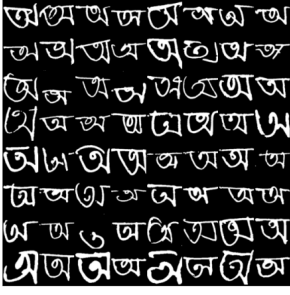 অ অ অ অ অ অ অ অ
অ অ অ অ অ অ অ অ
অ অ অ অ অ অ অ অ
অ অ অ অ অ অ অ অ
অ অ অ অ অ অ অ অ
অ অ অ অ অ অ অ অ
অ অ অ অ অ অ অ
অ অ অ অ অ অ অ অ